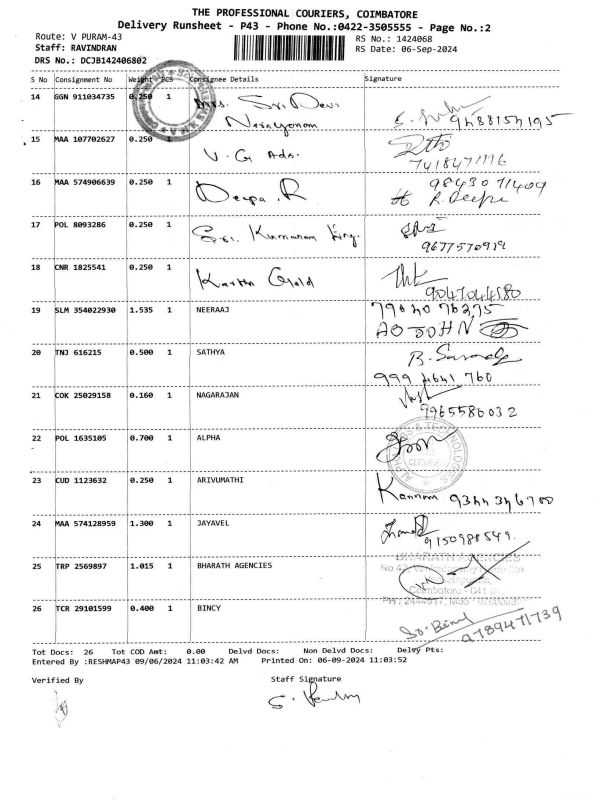 THE PROFESSIONAL COURIERS, COIMBATORE
Delivery Runsheet - P43 - Phone No.:0422-3505555 - Page No.:2
Route: V PURAM-43
RS No.: 1424068
Staff: RAVINDRAN
RS Date: 06-Sep-2024
DRS No.: DCJB142406802
S No Consignment No Weight PCS Consignee Details Signature
14 GGN 911034735 0.250 1 Mrs. Sri Devi
Narayanan
9488154195
15 MAA 107702627 0.250 V. G Ads.
7418471776
16 MAA 574906639 0.250 1 Deepa. R 9843071409
R. Deepa
17 POL 8093286 0.250 1 Sri. Kumaran Eng.
9677570919
18 CNR 1825541 0.250 1 Karthi Gold
9047044580
19 SLM 354022930 1.535 1 NEERAAJ
JOHN
20 TNJ 616215 0.500 1 SATHYA
999 4641 760
21 COK 25029158 0.160 1 NAGARAJAN
9965580032
22 POL 1635105 0.700 1 ALPHA
23 CUD 1123632 0.250 1 ARIVUMATHI
Kannan 9344346700
24 MAA 574128959 1.300 1 JAYAVEL
9150988549.
25 TRP 2569897 1.015 1 BHARATH AGENCIES
BHARATH AGENCIES
26 TCR 29101599 0.400 1 BINCY
9789471739
Tot Docs: 26 Tot COD Amt: 0.00 Delvd Docs: Non Delvd Docs: Delvy Pts:
Entered By :RESHMAP43 09/06/2024 11:03:42 AM Printed On: 06-09-2024 11:03:52
Verified By Staff Signature